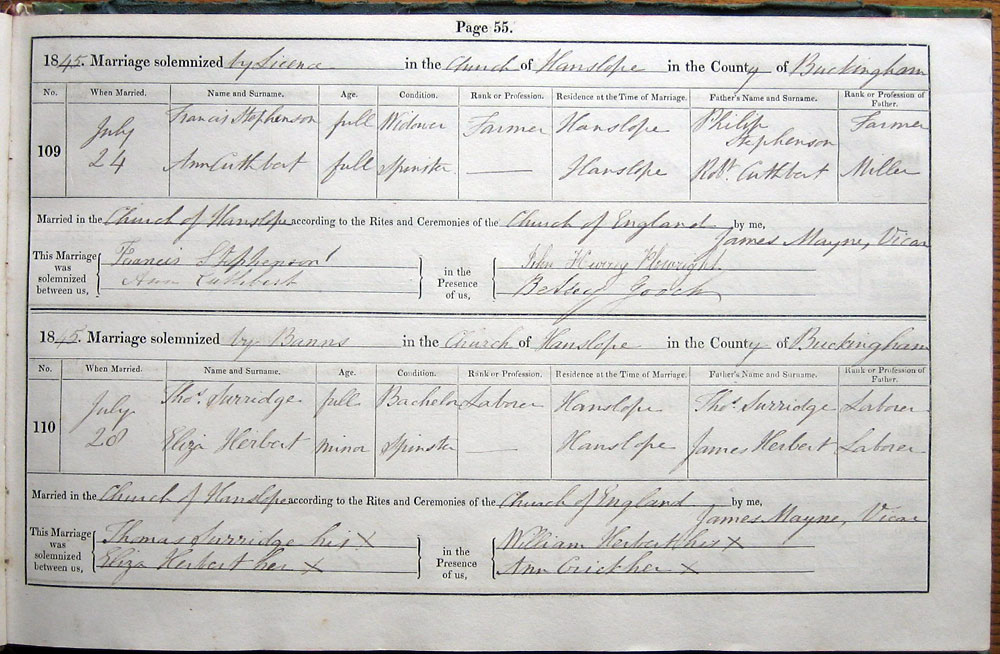 Page 55.
1845. Marriage solemnized by Licence in the Church of Hanslope in the County of Buckingham
No. When Married. Name and Surname. Age. Condition. Rank or Profession. Residence at the Time of Marriage. Father's Name and Surname. Rank or Profession of Father.
109 July 24
Francis Stephenson full Widower Farmer Hanslope Philip Stephenson Farmer
Ann Cuthbert full Spinster — Hanslope Robt. Cuthbert Miller
Married in the Church of Hanslope according to the Rites and Ceremonies of the Church of England by me,
James Mayne, Vicar
This Marriage was solemnized between us,
Francis Stephenson
Ann Cuthbert
in the Presence of us,
John Howright
Betsey Gooch
1845. Marriage solemnized by Banns in the Church of Hanslope in the County of Buckingham
No. When Married. Name and Surname. Age. Condition. Rank or Profession. Residence at the Time of Marriage. Father's Name and Surname. Rank or Profession of Father.
110 July 28
Thos. Surridge full Bachelor Laborer Hanslope Thos. Surridge Laborer
Eliza Herbert minor Spinster — Hanslope James Herbert Laborer
Married in the Church of Hanslope according to the Rites and Ceremonies of the Church of England by me,
James Mayne, Vicar
This Marriage was solemnized between us,
Thomas Surridge his X
Eliza Herbert her X
in the Presence of us,
William Herbert his X
Ann her X